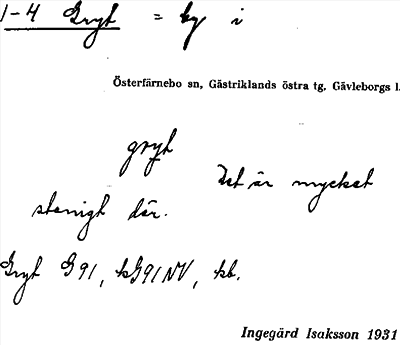 1-4 Gryt = by i
Österfärnebo sn, Gästriklands östra tg, Gävleborgs l.
gryt
Det är mycket
stenigt där.
Gryt G91, kG91NV, kb.
Ingegärd Isaksson 1931